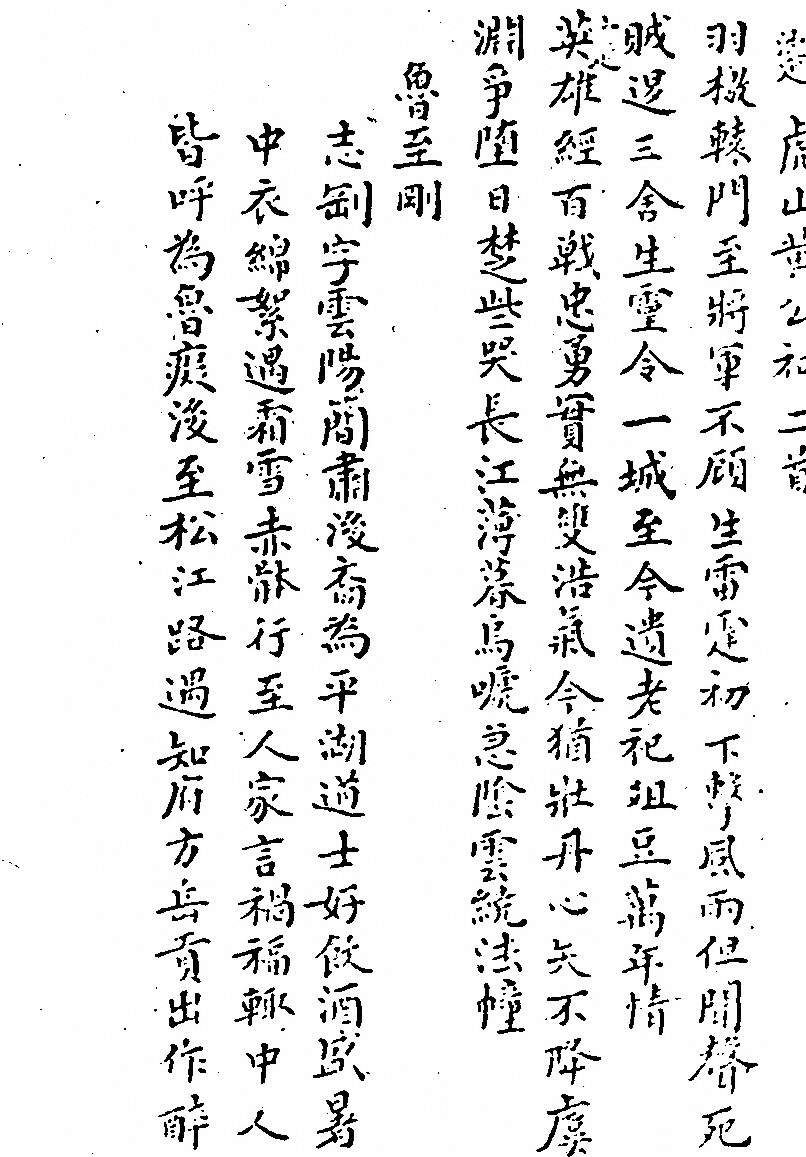 虎山黃公祠二首
羽檄轅門至將軍不顧生雷霆初下擊風雨但聞聲死
賊退三舍生靈令一城至今遺老祀俎豆萬年情
英雄經百戰忠勇實無雙浩氣今猶壯丹心矢不降虞
淵爭墮日楚些哭長江薄暮烏嗁急陰雲繞法幢
魯至剛
志剛字雲陽簡肅後裔為平湖道士好飲酒盛暑
中衣綿絮遇霜雪赤骵行至人家言禍福輒中人
皆呼為魯癡後至松江路過知府方岳貢出作醉